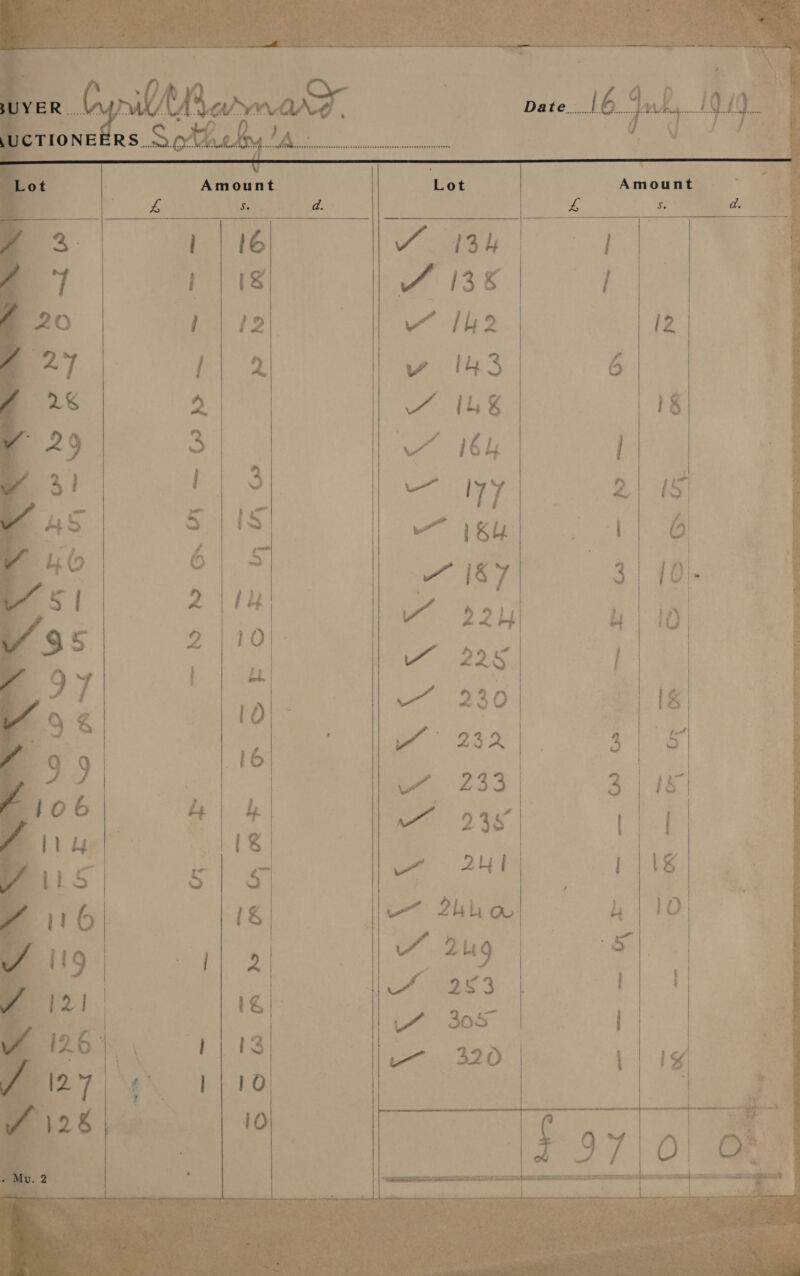 BUYER Cyril Barnard. Date 16 July, 1919
AUCTIONEERS Sotheby's
Lot Amount Lot Amount
£ s. d. £ s. d.
✓ 3 1 16 ✓ 134 1
✓ 7 1 18 ✓ 138 1
✓ 20 1 12 ✓ 142 12
✓ 27 1 2 ✓ 143 6
✓ 28 2 ✓ 148 18
✓ 29 3 ✓ 164 1
✓ 31 1 3 ✓ 177 2 15
✓ 45 5 15 ✓ 184 1 6
✓ 46 6 5 ✓ 187 3 10
✓ 51 2 14 ✓ 224 4 10
✓ 95 2 10 ✓ 225 1
✓ 97 1 4 ✓ 230 18
✓ 98 10 ✓ 232 3 5
✓ 99 16 ✓ 233 3 15
✓ 106 4 4 ✓ 235 1 1
✓ 114 18 ✓ 241 1 18
✓ 115 5 5 ✓ 244a 4 10
✓ 116 18 ✓ 249 5
✓ 119 1 2 ✓ 253 1 1
✓ 121 18 ✓ 305 1
✓ 126 1 13 ✓ 320 1 18
✓ 127 1 10
✓ 128 10
£ 97 0 0
Mu. 2